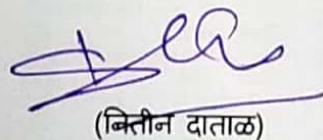 (नितीन दाताळ)